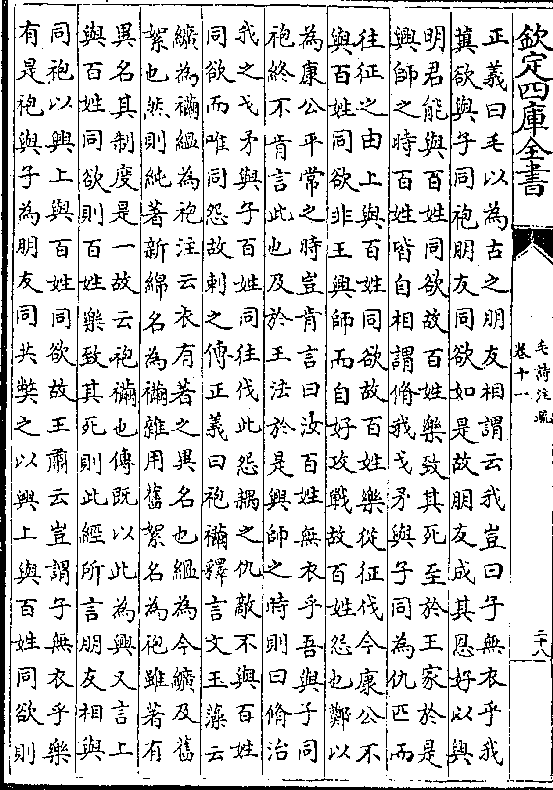 欽定四庫全書
毛詩注疏
卷十一
二十八
正義曰毛以為古之朋友相謂云我豈曰子無衣乎我
冀欲與子同袍朋友同欲如是故朋友成其恩好以興
明君能與百姓同欲故百姓樂致其死至於王家於是
興師之時百姓皆自相謂脩我戈矛與子同為仇匹而
往征之由上與百姓同欲故百姓樂從征伐今康公不
與百姓同欲非王興師而自好攻戰故百姓怨也鄭以
為康公平常之時豈肯言曰汝百姓無衣乎吾與子同
袍終不肯言此也及於王法於是興師之時則曰脩治
我之戈矛與子百姓同往伐此怨耦之仇敵不與百姓
同欲而唯同怨故刺之傳正義曰袍襺釋言文王藻云
纊為襺緼為袍注云衣有著之異名也緼為今纊及舊
絮也然則純著新綿名為襺雜用舊絮名為袍雖著有
異名其制度是一故云袍襺也傳既以此為興又言上
與百姓同欲則百姓樂致其死則此經所言朋友相與
同袍以興上與百姓同欲故王肅云豈謂子無衣乎樂
有是袍與子為朋友同共獘之以興上與百姓同欲則